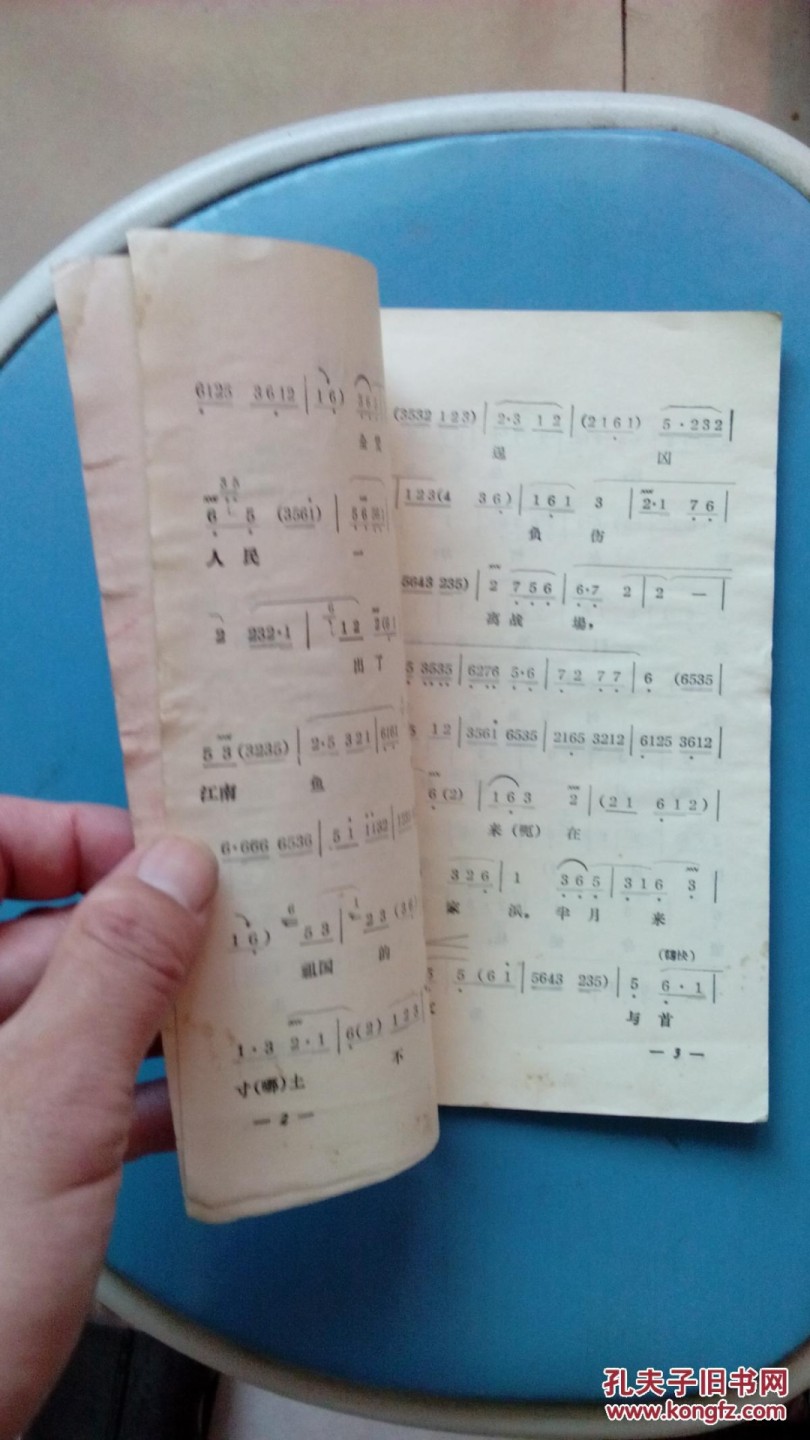 6125 3612 | 16)
人民 一
2 232·1 | 12 261
出了
53 (3235) | 2·5 321 | 6161
江南 鱼
6·666 6536 | 5 1 1132
16) 53 | 23 (36
祖国 的
1·3 2·1 | 6(2) 123
寸(哪)土 不
— 2 —
(3532 123) | 2·3 12 | (2161) 5·232 |
逞 凶
123(4 36) | 161 3 | 2·1 76 |
负 伤
5643 235) | 2 756 | 6·7 2 | 2 — |
离战 場,
5 3535 | 6276 5·6 | 72 77 | 6 (6535 |
12 | 3561 6535 | 2165 3212 | 6125 3612 |
6(2) | 163 2 | (21 612) |
来(呃)在
326 | 1 365 | 316 3 |
家 浜。半月 来
(稍快)
5 (61 | 5643 235) | 5 6·1 |
与首
— 3 —
孔夫子旧书网
www.kongfz.com